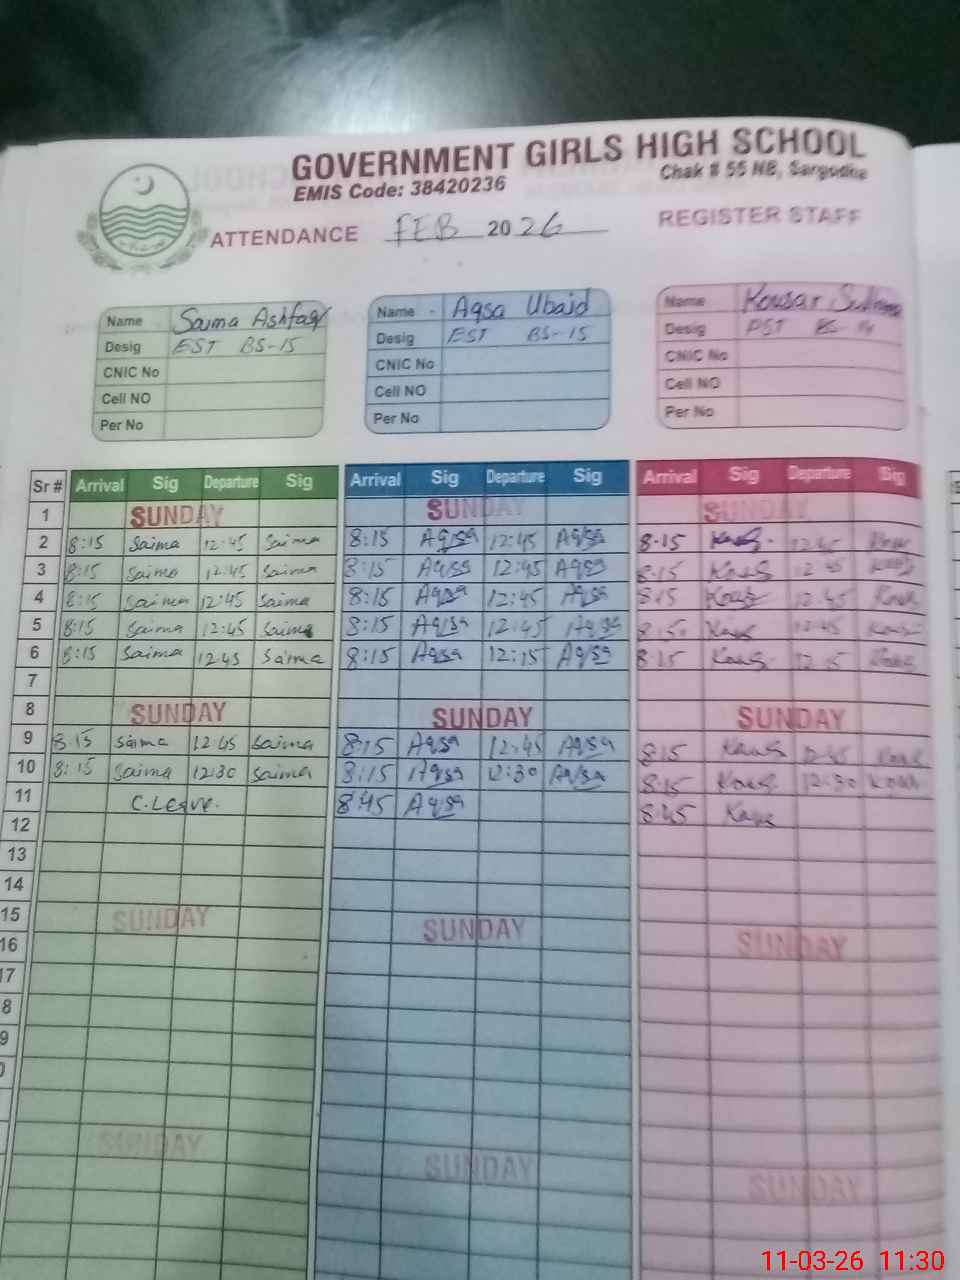 GOVERNMENT GIRLS HIGH SCHOOL
EMIS Code: 38420236
Chak # 55 NB, Sargodha
ATTENDANCE FEB 2026 REGISTER STAFF
Name Saima Ashfaq
Desig EST BS-15
CNIC No
Cell NO
Per No
Name Aqsa Ubaid
Desig EST BS-15
CNIC No
Cell NO
Per No
Name Kousar
Desig PST BS-14
CNIC No
Cell NO
Per No
Sr # Arrival Sig Departure Sig Arrival Sig Departure Sig Arrival Sig Departure Sig
1 SUNDAY SUNDAY SUNDAY
2 8:15 Saima 12:45 Saima 8:15 Aqsa 12:45 Aqsa 8:15 Kous 12:45 Kous
3 8:15 Saima 12:45 Saima 8:15 Aqsa 12:45 Aqsa 8:15 Kous 12:45 Kous
4 8:15 Saima 12:45 Saima 8:15 Aqsa 12:45 Aqsa 8:15 Kous 12:45 Kous
5 8:15 Saima 12:45 Saima 8:15 Aqsa 12:45 Aqsa 8:15 Kous 12:45 Kous
6 8:15 Saima 12:45 Saima 8:15 Aqsa 12:15 Aqsa 8:15 Kous 12:15 Kous
7
8 SUNDAY SUNDAY SUNDAY
9 8:15 Saima 12:45 Saima 8:15 Aqsa 12:45 Aqsa 8:15 Kous 12:45 Kous
10 8:15 Saima 12:30 Saima 8:15 Aqsa 12:30 Aqsa 8:15 Kous 12:30 Kous
11 C.Leave. 8:45 Aqsa 8:45 Kous
12
13
14
15 SUNDAY SUNDAY SUNDAY
16
17
8
9
SUNDAY SUNDAY SUNDAY
11-03-26 11:30